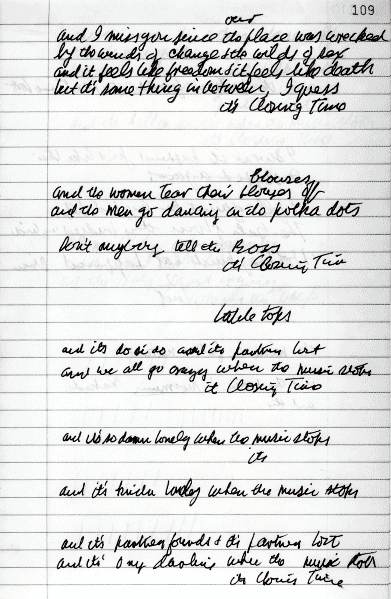 109
our
and I miss you since the place was wrecked
by the winds of change & the wilds of sex
and it feels like freedom & it feels like death
but it's something in between, I guess
it's Closing Time
blouses
and the women tear their blouses off
and the men go dancing on the polka dots
Don't anybody tell the Boss
it's Closing Time
table tops
and it's do si do and it's partner lost
and we all go crazy when the music stops
it Closing Time
and it's so damn lonely when the music stops
its
and it's kinda lonely when the music stops
and it's partner found & it's partner lost
and it's O my darling when the music stops
its Closing Time